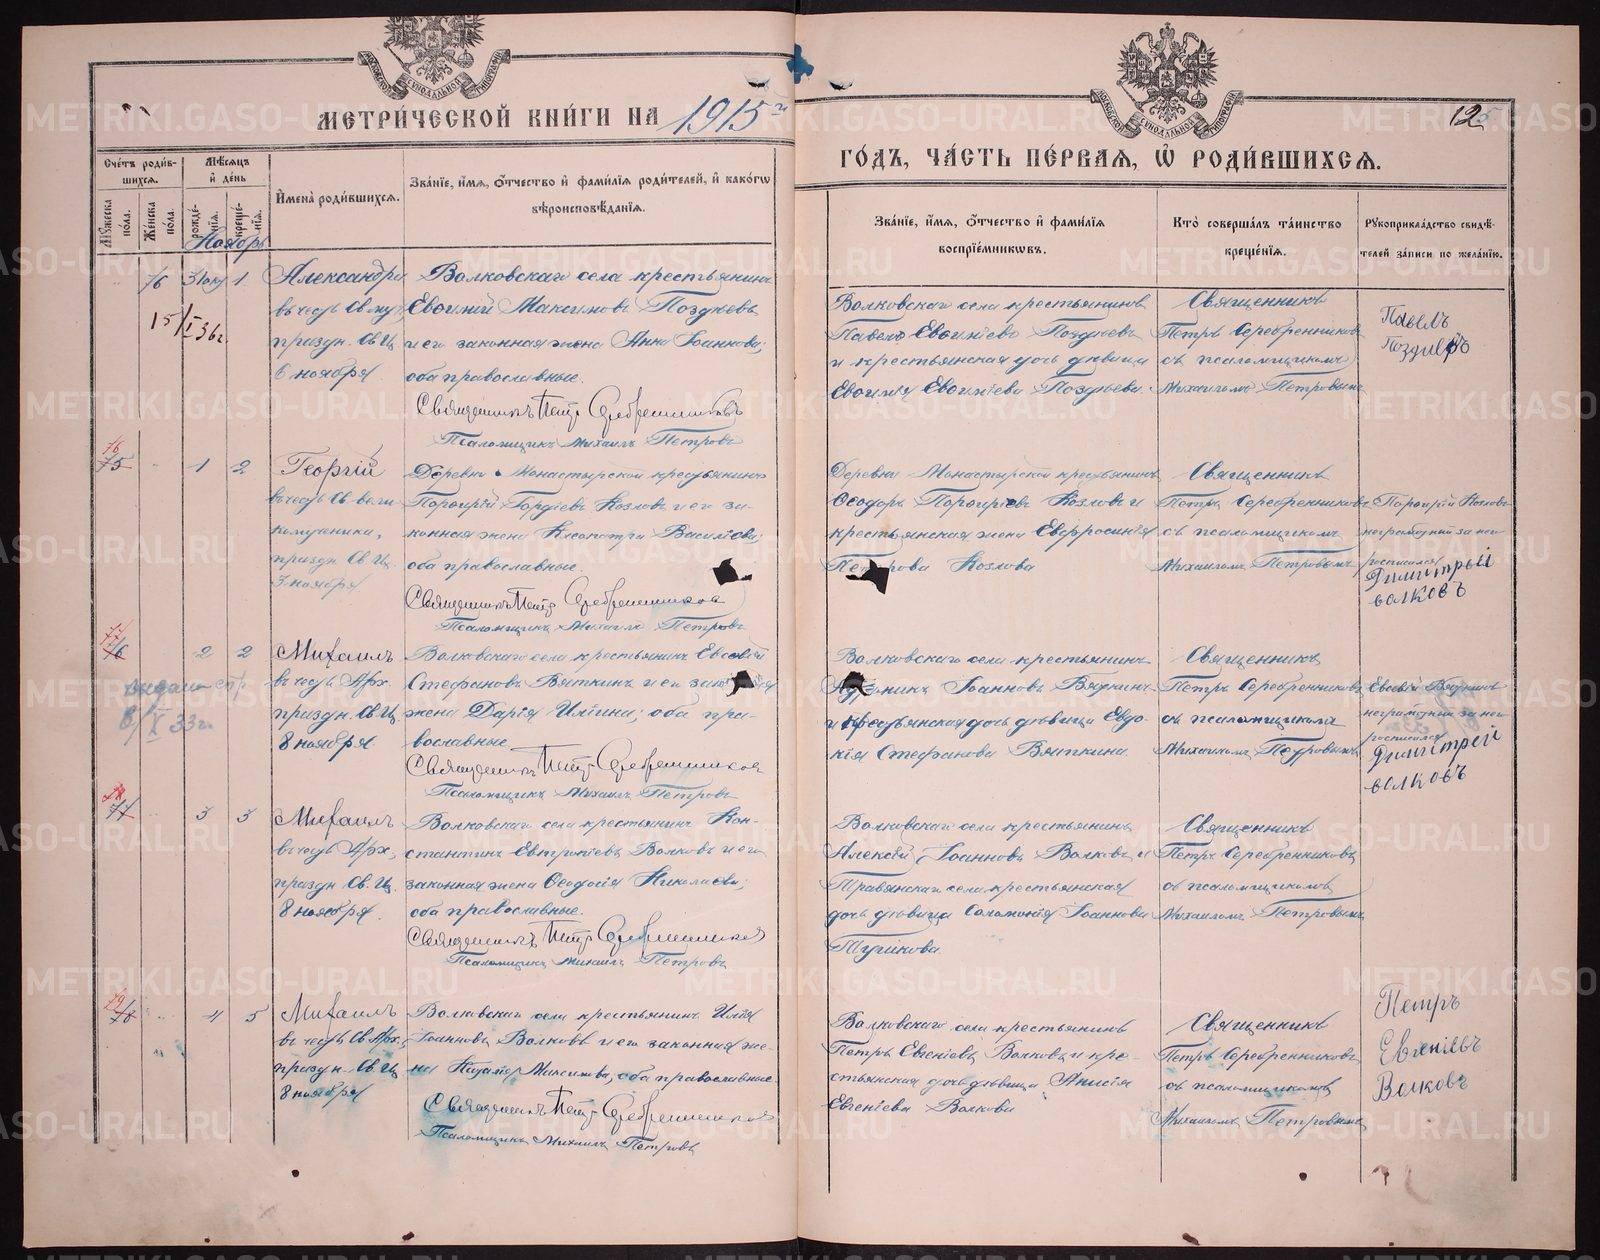 МЕТРИЧЕСКОЙ КНИГИ НА 1915 й
ГОДЪ, ЧАСТЬ ПЕРВАЯ, Ѡ РОДИВШИХСЯ.
12
Счетъ родив-
шихся.
Мужеска
пола.
Женска
пола.
Мѣсяцъ
и день
рожде-
нія.
креще-
нія.
Имена родившихся.
Званіе, имя, отчество и фамилія родителей, и какогѡ
вѣроисповѣданія.
Званіе, имя, отчество и фамилія
воспріемниковъ.
Кто совершалъ таинство
крещенія.
Рукоприкладство свидѣ-
телей записи по желанію.
Ноябрь
76
1
15/I 36г.
Александра
празд. Св. Ц.
6 ноября
Волковскаго села крестьянинъ
Евѳимій Максимовъ Поздѣевъ
и его законная жена Анна Іоаннова;
оба православные.
Священникъ Петръ Серебренниковъ
Псаломщикъ Михаилъ Петровъ
Волковскаго села крестьянинъ
Павелъ Евѳиміевъ Поздѣевъ
и крестьянская дочь дѣвица
Евѳимія Евѳиміева Поздѣева
Священникъ
Петръ Серебренниковъ
съ псаломщикомъ
Михаиломъ Петровымъ
Павелъ
Поздѣевъ
76
75
1
2
Георгій
въ честь Св. вели
комученика,
праздн. Св. Ц.
ноября
Деревни Монастырской крестьянинъ
Порфирій Гордѣевъ Козловъ и его за-
конная жена Клеопатра Василіева;
оба православные.
Священникъ Петръ Серебренниковъ
Псаломщикъ Михаилъ Петровъ
Деревни Монастырской крестьянинъ
Ѳеодоръ Порфиріевъ Козловъ и
крестьянская жена Евфросинія
Петрова Козлова
Священникъ
Петръ Серебренниковъ
съ псаломщикомъ
Михаиломъ Петровымъ
Порфирій Козловъ
неграмотный за него
росписался
Димитрій
волковъ
77
76
2
2
Михаилъ
въ честь Арх.
праздн. Св. Ц.
8 ноября
выдана спр.
33 г.
Волковскаго села крестьянинъ Евсевій
Стефановъ Вяткинъ и его законная
жена Дарія Иліина; оба пра-
вославные
Священникъ Петръ Серебренниковъ
Псаломщикъ Михаилъ Петровъ
Волковскаго села крестьянинъ
Іоанновъ Вяткинъ
и крестьянская дочь дѣвица Евдо-
кія Стефанова Вяткина
Священникъ
Петръ Серебренниковъ
съ псаломщикомъ
Михаиломъ Петровымъ
Евсевій Вяткинъ
неграмотный за него
росписался
Димитрій
волковъ
78
77
3
3
Михаилъ
въ честь Арх.
праздн. Св. Ц.
8 ноября
Волковскаго села крестьянинъ Кон-
стантинъ Евтропіевъ Волковъ и его
законная жена Ѳеодосія Николаева;
оба православные.
Священникъ Петръ Серебренниковъ
Псаломщикъ Михаилъ Петровъ
Волковскаго села крестьянинъ
Алексѣй Іоанновъ Волковъ и
Травянскаго села крестьянская
дочь дѣвица Соломонія Іоаннова
Священникъ
Петръ Серебренниковъ
съ псаломщикомъ
Михаиломъ Петровымъ
79
78
4
5
Михаилъ
въ честь Св. Арх.
праздн. Св. Ц.
8 ноября
Волковскаго села крестьянинъ Илія
Іоанновъ Волковъ и его законная же-
на Максимова, оба православные.
Священникъ Петръ Серебренниковъ
Псаломщикъ Михаилъ Петровъ
Волковскаго села крестьянинъ
Петръ Евгеніевъ Волковъ и кре-
стьянская дочь дѣвица Анисія
Евгеніева Волкова
Священникъ
Петръ Серебренниковъ
съ псаломщикомъ
Михаиломъ Петровымъ
Петръ
Евгеніевъ
Волковъ
METRIKI.GASO-URAL.RU